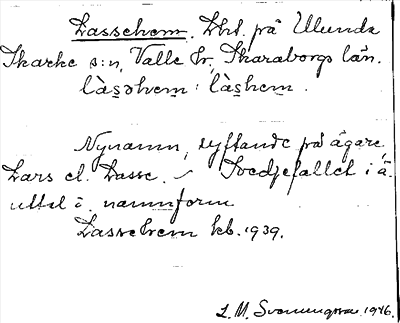 Lassehem. Lht. på Ulunda
Skarke s:n, Valle hr, Skaraborgs län.
làs̲ɔhem̲ : làs̲hem̲.
Nynamn, syftande på ägare
Lars el. Lasse. – Svedjefallet i ä.
uttal i namnform
Lassehem kb. 1939.
L.M. Svenungsson 1946.